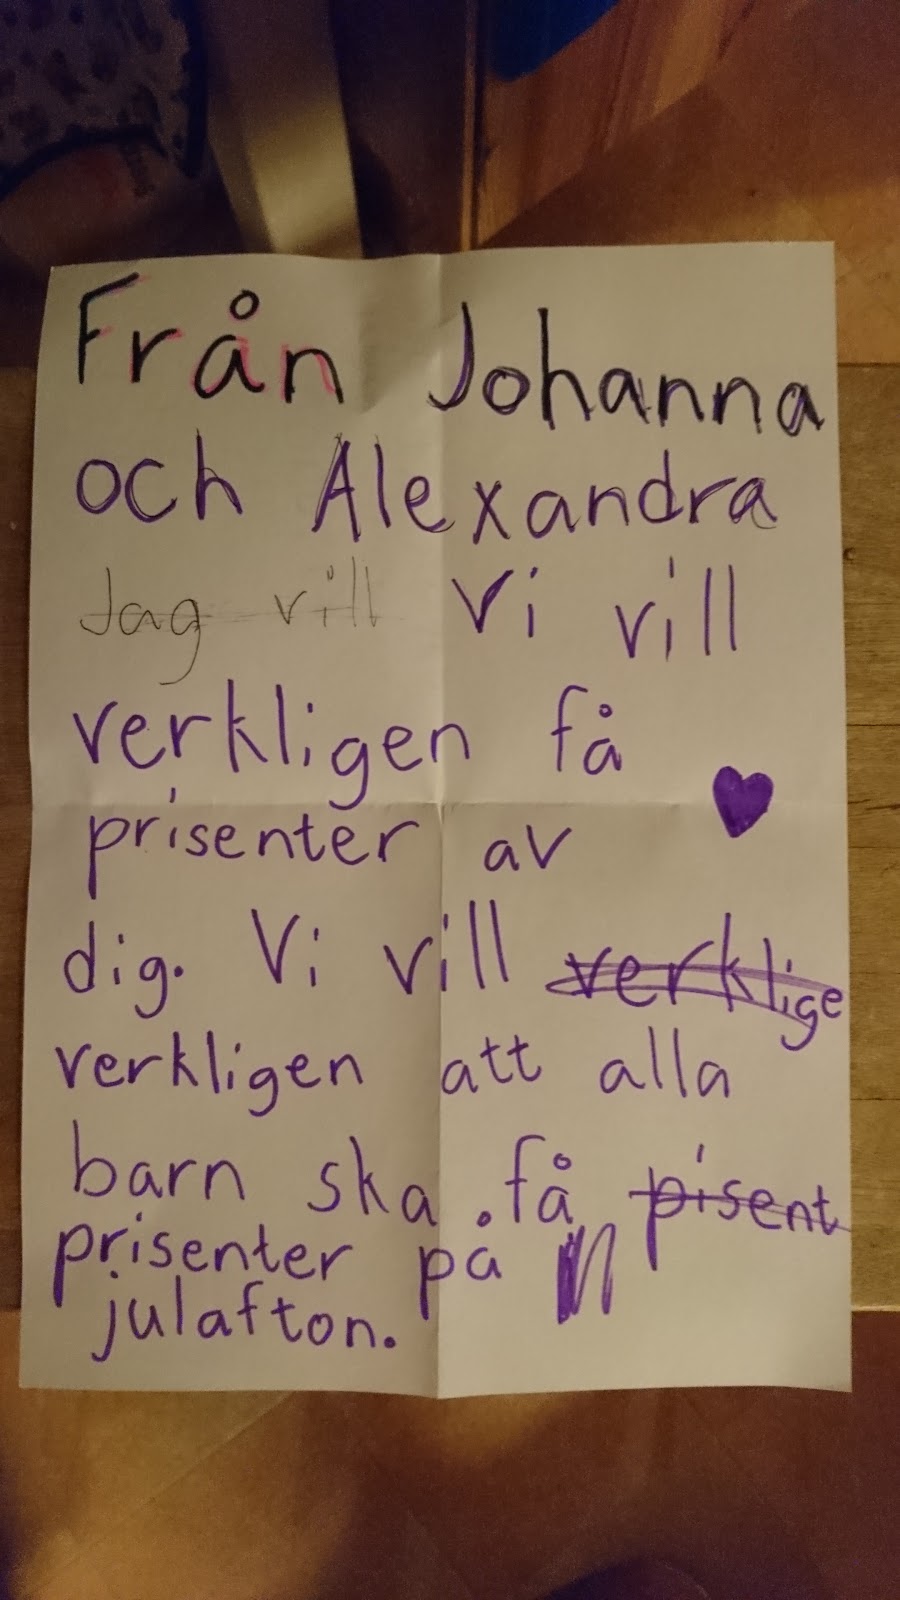 Från Johanna
och Alexandra
Jag vill Vi vill
verkligen få
prisenter av
dig. Vi vill verklige
verkligen att alla
barn ska få pisent
prisenter på
julafton.